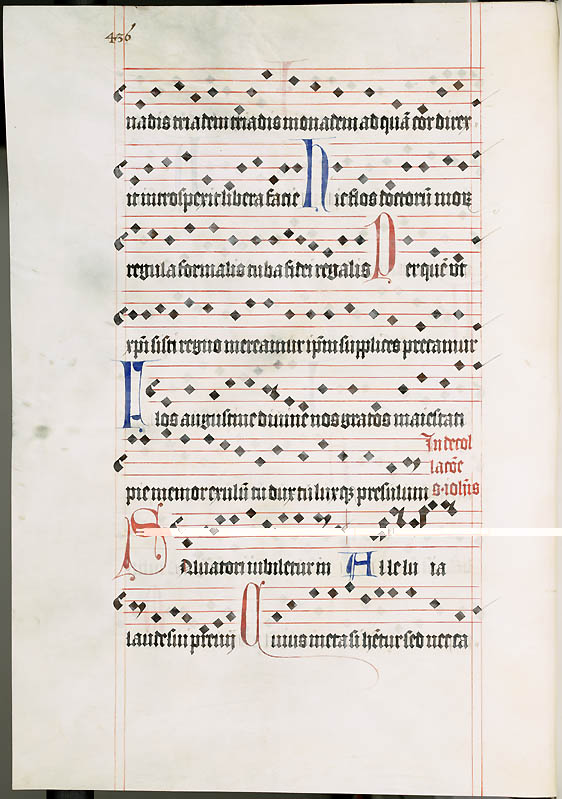 436
nadis triadem triadis monadem ad quā cor direx
it introspexit libera facie Hic flos doctorū mor
regula formalis tuba fidei regalis Per quē ut
xpi sisti regno mereamur ipm supplices precamur
Flos augustine divine nos gratos maiestati
pie memor exulū tu dux tu lux qz presulum
In decol
lacōe
s. iohis
Salvatori iubiletur in Alleluia
laude sui precurs
Cuius meta si hetur sed nec ca